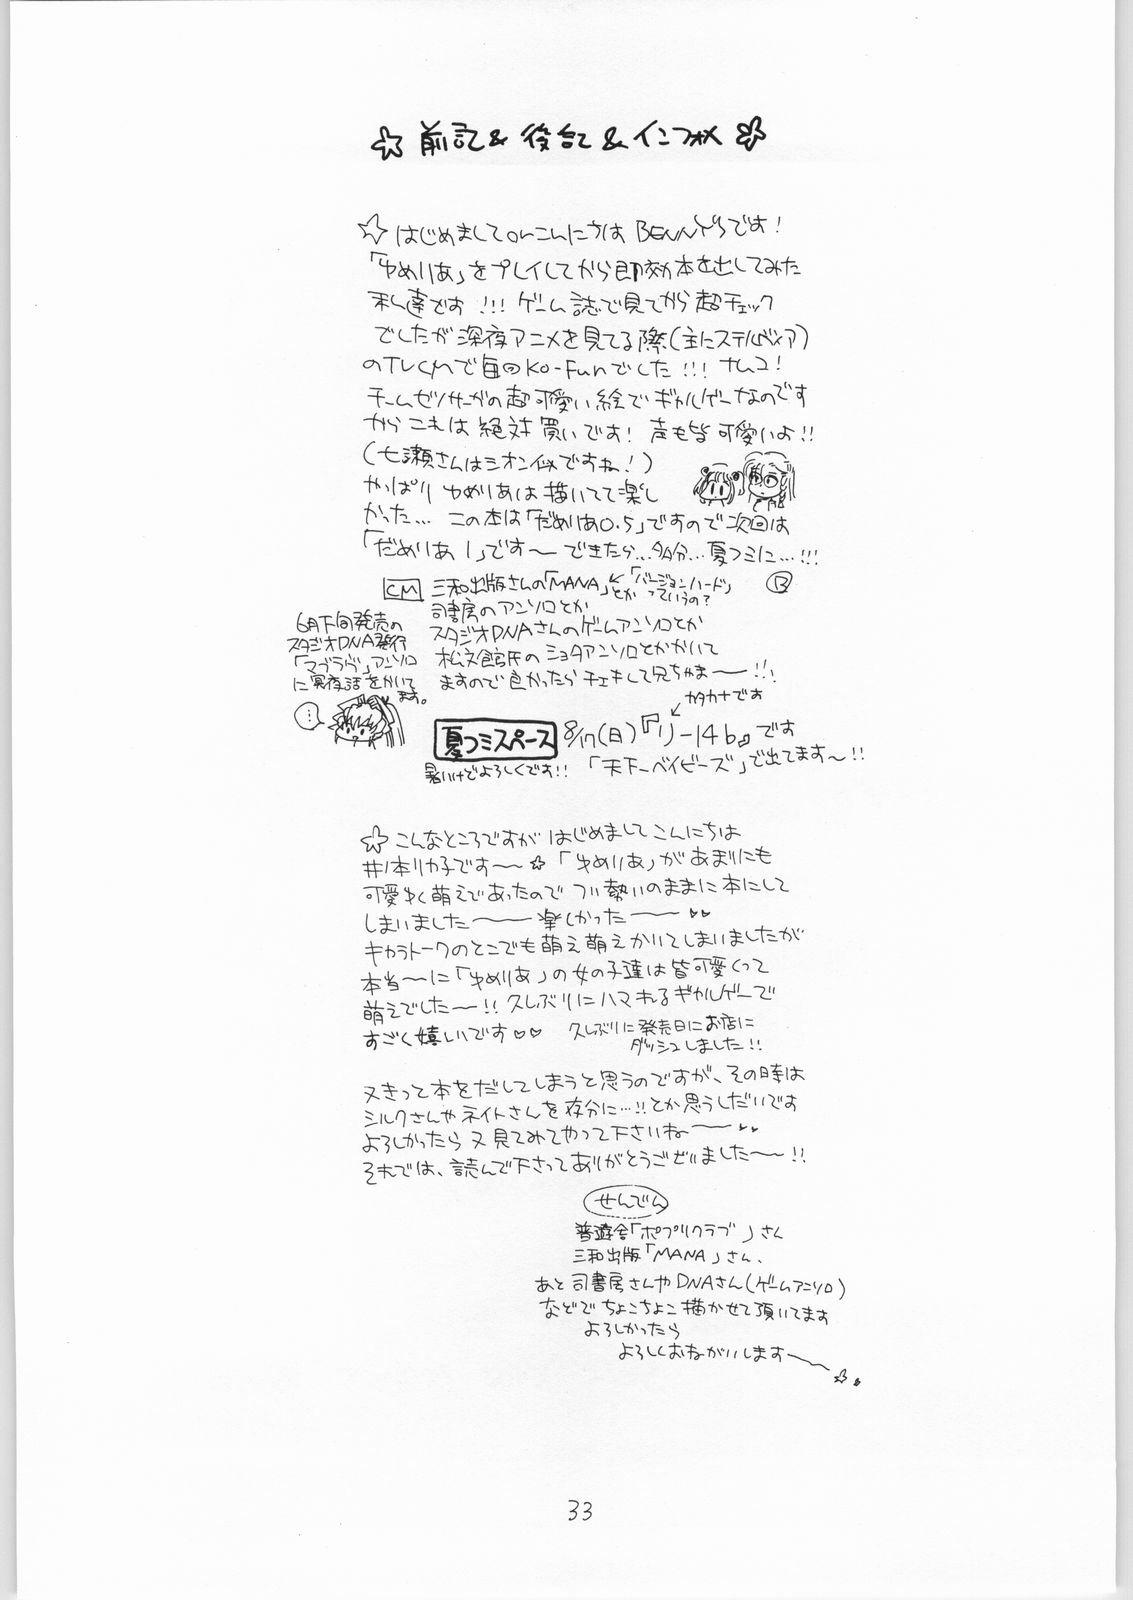 ☆ 前記&後記&インフォメ ☆
☆はじめましてorこんにちは BENNY'Sです!
「ゆめりあ」をプレイしてから即効本を出してみた
私達です!!! ゲーム誌で見てから超チェック
でしたが深夜アニメを見てる際(主にステルヴィア)
のTVCMで毎回Ko-Funでした!!! ナムコ!
チームゼノサーガの超可愛い絵でギャルゲーなのです
からこれは絶対買いです! 声も皆可愛いよ!!
(七瀬さんはシオン似ですね!)
やっぱりゆめりあは描いてて楽し
かった… この本は「だめりあ0.5」ですので次回は
「だめりあ1」です〜できたら…多分…夏コミに…!!!
CM 三和出版さんの「MANA」とか ←「バージョンハード」っていうの? B
司書房のアンソロとか
スタジオDNAさんのゲームアンソロとか
松文館氏のショタアンソロとかかいて
ますので良かったらチェキして兄ちゃま〜!!!
6月下旬発売の
スタジオDNA発行
「マブラヴ」アンソロ
に冥夜話をかいて
ます。
…
カタカナです
夏コミスペース 8/17(日)『リ-14b』です
暑いけどよろしくです!! 「天下一ベイビーズ」で出てます〜!!
☆こんなところですがはじめましてこんにちは
井ノ本リカ子です〜☆「ゆめりあ」があまりにも
可愛く萌えであったのでつい勢いのままに本にして
しまいました〜楽しかった〜♥♥
キャラトークのとこでも萌え萌えかいてしまいましたが
本当〜に「ゆめりあ」の女の子達は皆可愛くって
萌えでした〜!! 久しぶりにハマれるギャルゲーで
すごく嬉しいです♥♥ 久しぶりに発売日にお店に
ダッシュしました!!
又きって本をだしてしまうと思うのですが、その時は
シルクさんやネイトさんを存分に…!!とか思うしだいです
よろしかったら又見てみてやって下さいね〜♥♥
それでは、読んで下さってありがとうございました〜!!
せんでん
普遊舎「ポプリクラブ」さん
三和出版「MANA」さん、
あと司書房さんやDNAさん(ゲームアンソロ)
などでちょこちょこ描かせて頂いてます
よろしかったら
よろしくおねがいします〜☆。
33